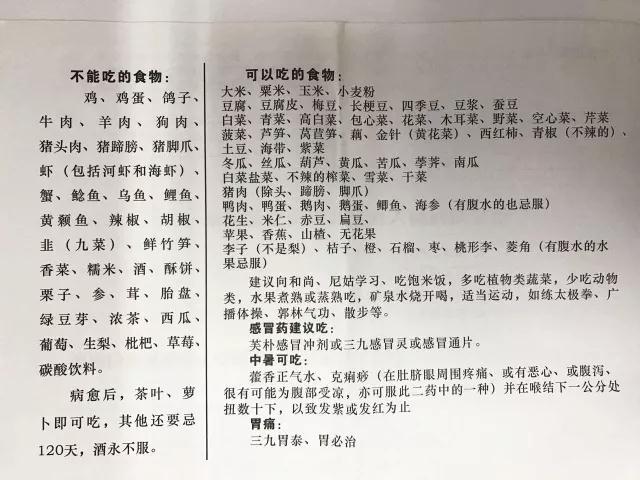 不能吃的食物：
鸡、鸡蛋、鸽子、
牛肉、羊肉、狗肉、
猪头肉、猪蹄膀、猪脚爪、
虾（包括河虾和海虾）、
蟹、鲶鱼、乌鱼、鲤鱼、
黄颡鱼、辣椒、胡椒、
韭（九菜）、鲜竹笋、
香菜、糯米、酒、酥饼、
栗子、参、茸、胎盘、
绿豆芽、浓茶、西瓜、
葡萄、生梨、枇杷、草莓、
碳酸饮料。
病愈后，茶叶、萝
卜即可吃，其他还要忌
120天，酒永不服。
可以吃的食物：
大米、粟米、玉米、小麦粉
豆腐、豆腐皮、梅豆、长梗豆、四季豆、豆浆、蚕豆
白菜、青菜、高白菜、包心菜、花菜、木耳菜、野菜、空心菜、芹菜
菠菜、芦笋、莴苣笋、藕、金针（黄花菜）、西红柿、青椒（不辣的）、
土豆、海带、紫菜
冬瓜、丝瓜、葫芦、黄瓜、苦瓜、荸荠、南瓜
白菜盐菜、不辣的榨菜、雪菜、干菜
猪肉（除头、蹄膀、脚爪）
鸭肉、鸭蛋、鹅肉、鹅蛋、鲫鱼、海参（有腹水的也忌服）
花生、米仁、赤豆、扁豆、
苹果、香蕉、山楂、无花果
李子（不是梨）、桔子、橙、石榴、枣、桃形李、菱角（有腹水的水
果忌服）
建议向和尚、尼姑学习、吃饱米饭，多吃植物类蔬菜，少吃动物
类，水果煮熟或蒸熟吃，矿泉水烧开喝，适当运动，如练太极拳、广
播体操、郭林气功、散步等。
感冒药建议吃：
芙朴感冒冲剂或三九感冒灵或感冒通片。
中暑可吃：
藿香正气水、克痢痧（在肚脐眼周围疼痛、或有恶心、或腹泻、
很有可能为腹部受凉，亦可服此二药中的一种）并在喉结下一公分处
扭数十下，以致发紫或发红为止
胃痛：
三九胃泰、胃必治